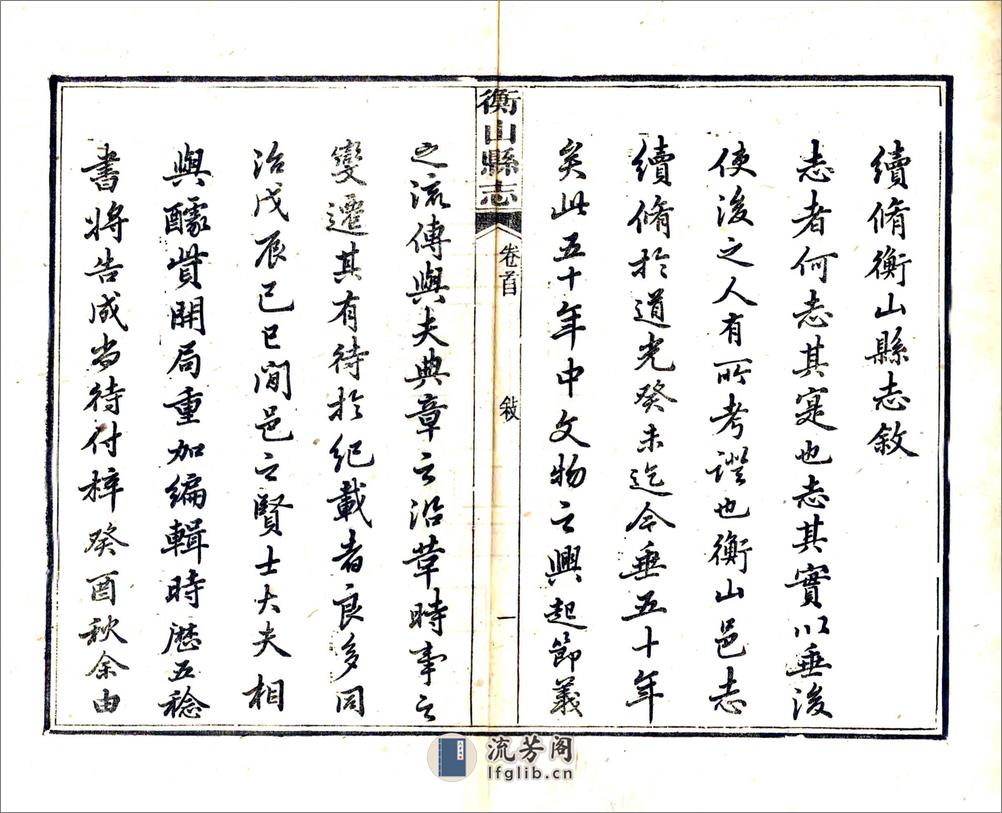 續脩衡山縣志敘
志者何志其寔也志其實以垂後
使後之人有所考證也衡山邑志
續脩於道光癸未迄今垂五十年
矣此五十年中文物之興起節義
衡山縣志
卷首
敘
一
之流傳與夫典章之沿革時事之
變遷其有待於紀載者良多同
治戊辰己巳間邑之賢士大夫相
與醵貲開局重加編輯時歷五稔
書將告成尚待付梓癸酉秋余由
流芳阁
lfglib.cn